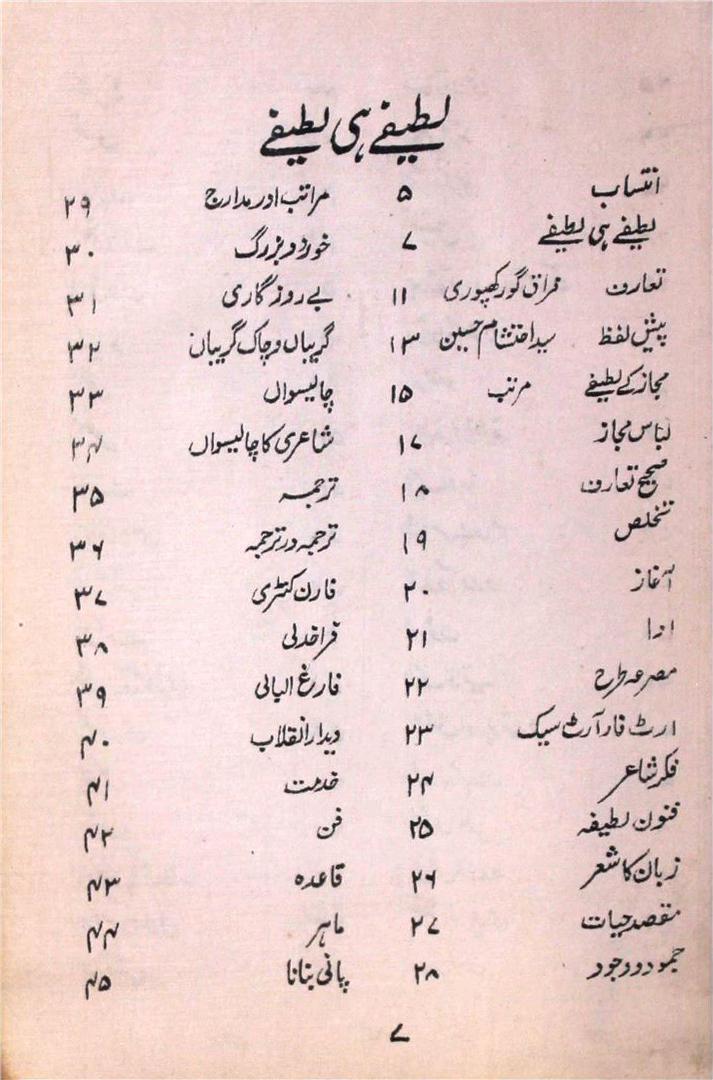 لطیفے ہی لطیفے
انتساب ۵
لطیفے ہی لطیفے ۷
تعارف فراق گورکھپوری ۱۱
پیش لفظ سید احتشام حسین ۱۳
مجاز کے لطیفے مرتب ۱۵
لباس مجاز ۱۷
صحیح تعارف ۱۸
تخلص ۱۹
آغاز ۲۰
ادا ۲۱
مصرعہ طرح ۲۲
ارٹ فار آرٹ سیک ۲۳
فکر شاعر ۲۴
فنون لطیفہ ۲۵
زبان کا شعر ۲۶
مقصد حیات ۲۷
جمود و وجود ۲۸
مراتب اور مدارج ۲۹
خورد و بزرگ ۳۰
بے روزگاری ۳۱
گریباں و چاک گریباں ۳۲
چالیسواں ۳۳
شاعری کا چالیسواں ۳۴
ترجمہ ۳۵
ترجمہ در ترجمہ ۳۶
فارن کنٹری ۳۷
فراخدلی ۳۸
فارغ البالی ۳۹
دیدار انقلاب ۴۰
خدمت ۴۱
فن ۴۲
قاعدہ ۴۳
ماہر ۴۴
پانی بنانا ۴۵
۷